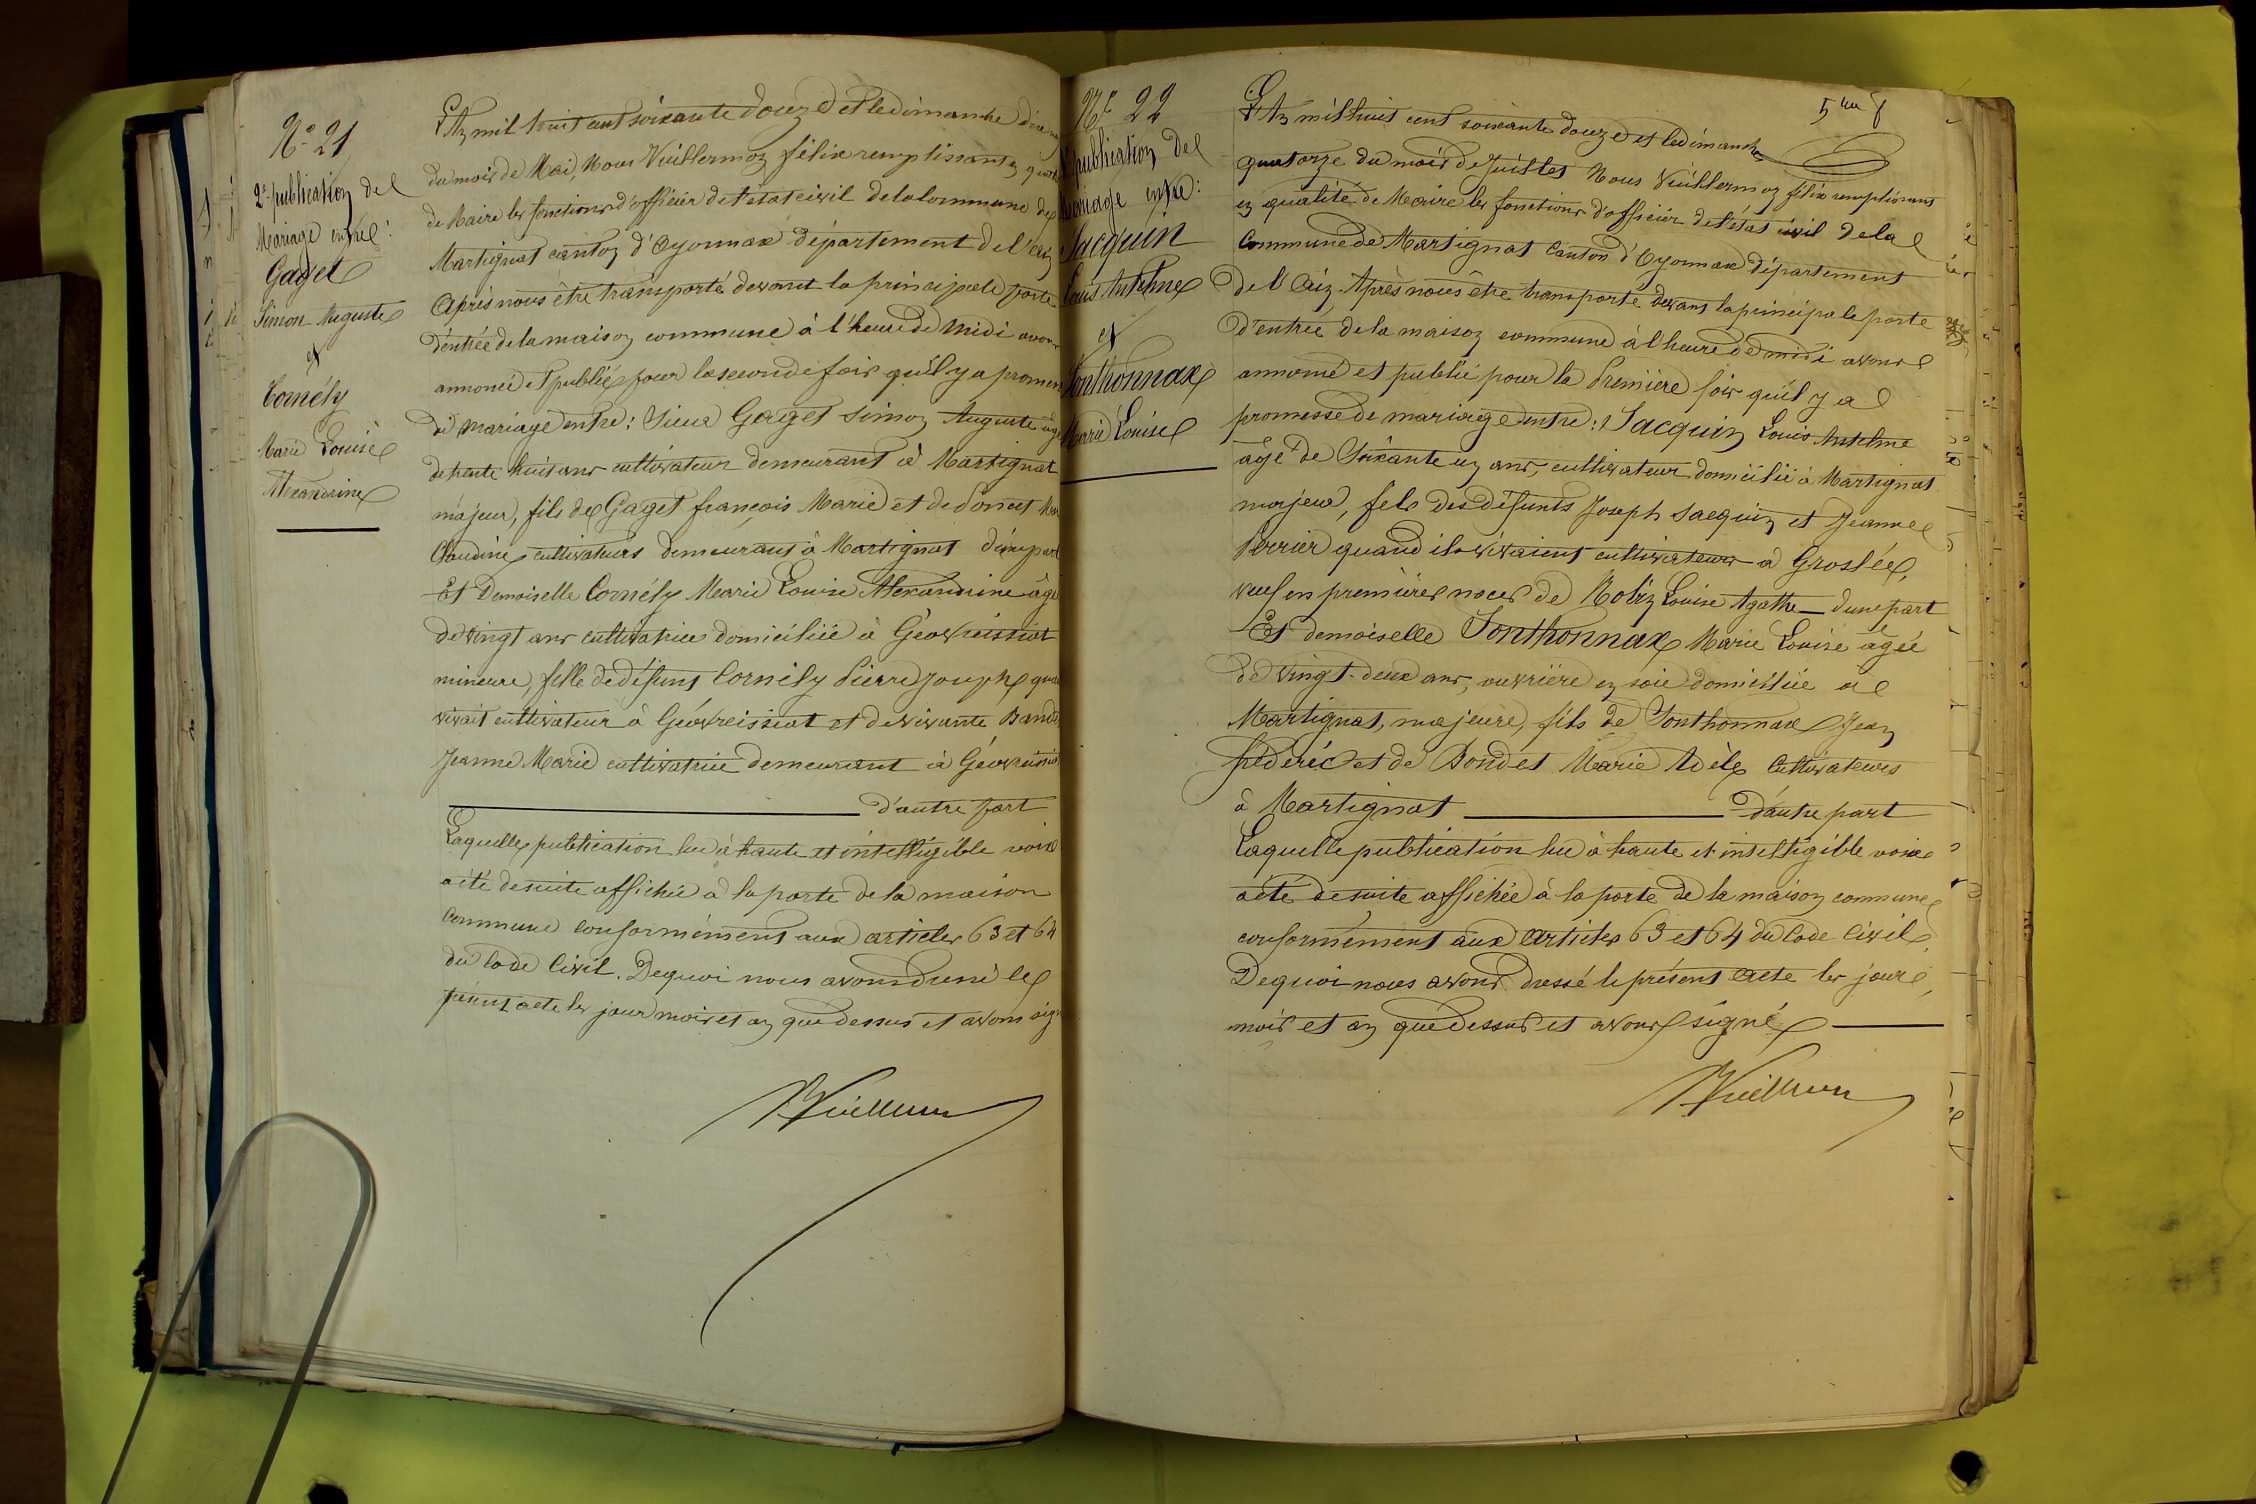 N° 21
2e publication de
Mariage entre:
Gaget
Simon Auguste
et
Cornély
Marie Louise
Alexandrine
L'An mil huit cent soixante douze et le dimanche
du mois de Mai, Nous Vuillermoz félix remplissant en
de Maire les fonctions d'officier de l'état civil de la Commune de
Martignat canton d'Oyonnax département de l'Ain
Après nous être transporté devant la principale porte
d'entrée de la maison commune à l'heure de midi avons
annoncé et publié pour la seconde fois qu'il y a
de mariage entre: Sieur Gaget Simon Auguste
de trente huit ans cultivateur demeurant à Martignat
majeur, fils de Gaget françois Marie et de
Claudine cultivateurs demeurant à Martignat d'une part
Et Demoiselle Cornély Marie Louise Alexandrine
de vingt ans cultivatrice domiciliée à Géovreissiat
mineure, fille de défunt Cornély Pierre Joseph
vivait cultivateur à Géovreissiat et de vivante
Jeanne Marie cultivatrice demeurant à
d'autre part
Laquelle publication lue à haute et intelligible voix
a été de suite affichée à la porte de la maison
Commune conformément aux articles 63 et 64
du Code Civil. De quoi nous avons le
acte les jour mois et an que dessus et avons
Vuillerm
N° 22
publication de
Mariage entre:
Jacquin
Louis Anthelme
et
Sonthonnax
Marie Louise
L'An mil huit cent soixante douze et le dimanche
quatorze du mois de Juillet Nous Vuillermoz félix remplissant
en qualité de Maire les fonctions d'officier de l'état civil de la
Commune de Martignat Canton d'Oyonnax département
de l'Ain. Après nous être transporté devant la principale porte
d'entrée de la maison commune à l'heure de midi avons
annoncé et publié pour la Première fois qu'il y a
promesse de mariage entre: Jacquin Louis Anthelme
âgé de Soixante un ans, cultivateur domicilié à Martignat
majeur, fils des défunts Joseph Jacquin et Jeanne
Perrier quand ils vivaient cultivateurs à Groslée,
veuf en premières noces de Robin Louise Agathe d'une part
Et demoiselle Sonthonnax Marie Louise âgée
de vingt-deux ans, ouvrière en soie domiciliée à
Martignat, majeure, fils de Sonthonnax Jean
fréderic et de Bondet Marie Adèle Cultivateurs
à Martignat d'autre part
Laquelle publication lue à haute et intelligible voix
a été de suite affichée à la porte de la maison commune
conformément aux Articles 63 et 64 du Code Civil.
De quoi nous avons dressé le présent Acte les jour,
mois et an que dessus et avons signé
Vuillerm